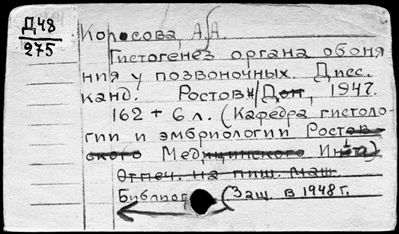 Д48
275
Колосова, А.А.
Гистогенез органа обоня
ния у позвоночных. Дисс.
канд. Ростов н/Дон, 1947.
162 + 6 л. (Кафедра гистоло-
гии и эмбриологии Ростов-
ского Медицинского Ин-та)
Отпеч. на пиш. маш.
Библиог (Защ. в 1948 г.